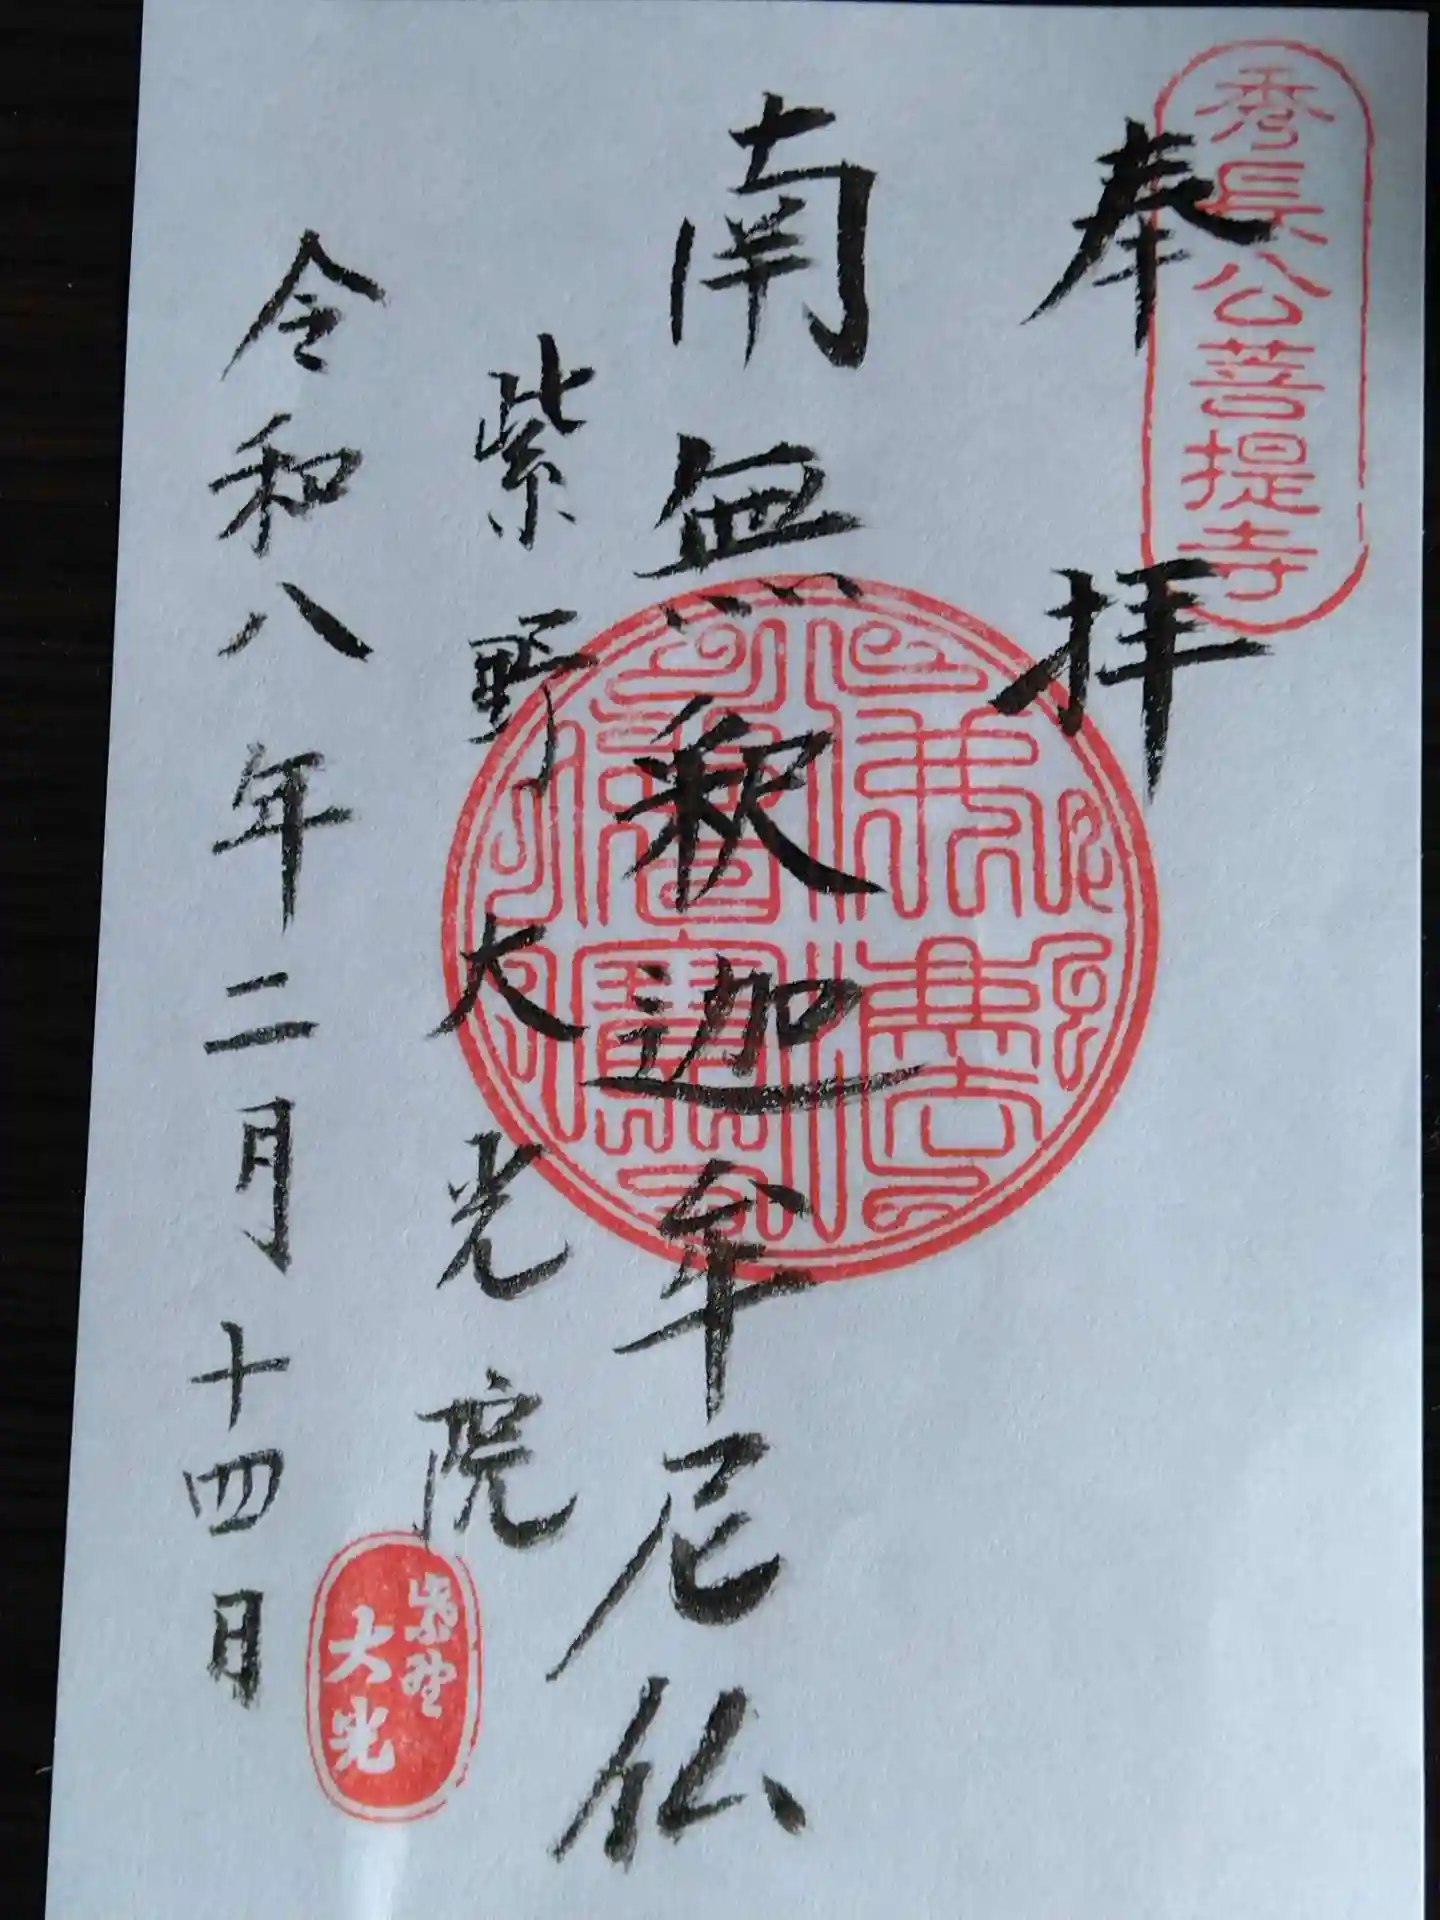 秀長公菩提寺
奉拝
南無釈迦牟尼仏
佛法僧寳
紫野大光院
令和八年二月十四日
紫野
大光